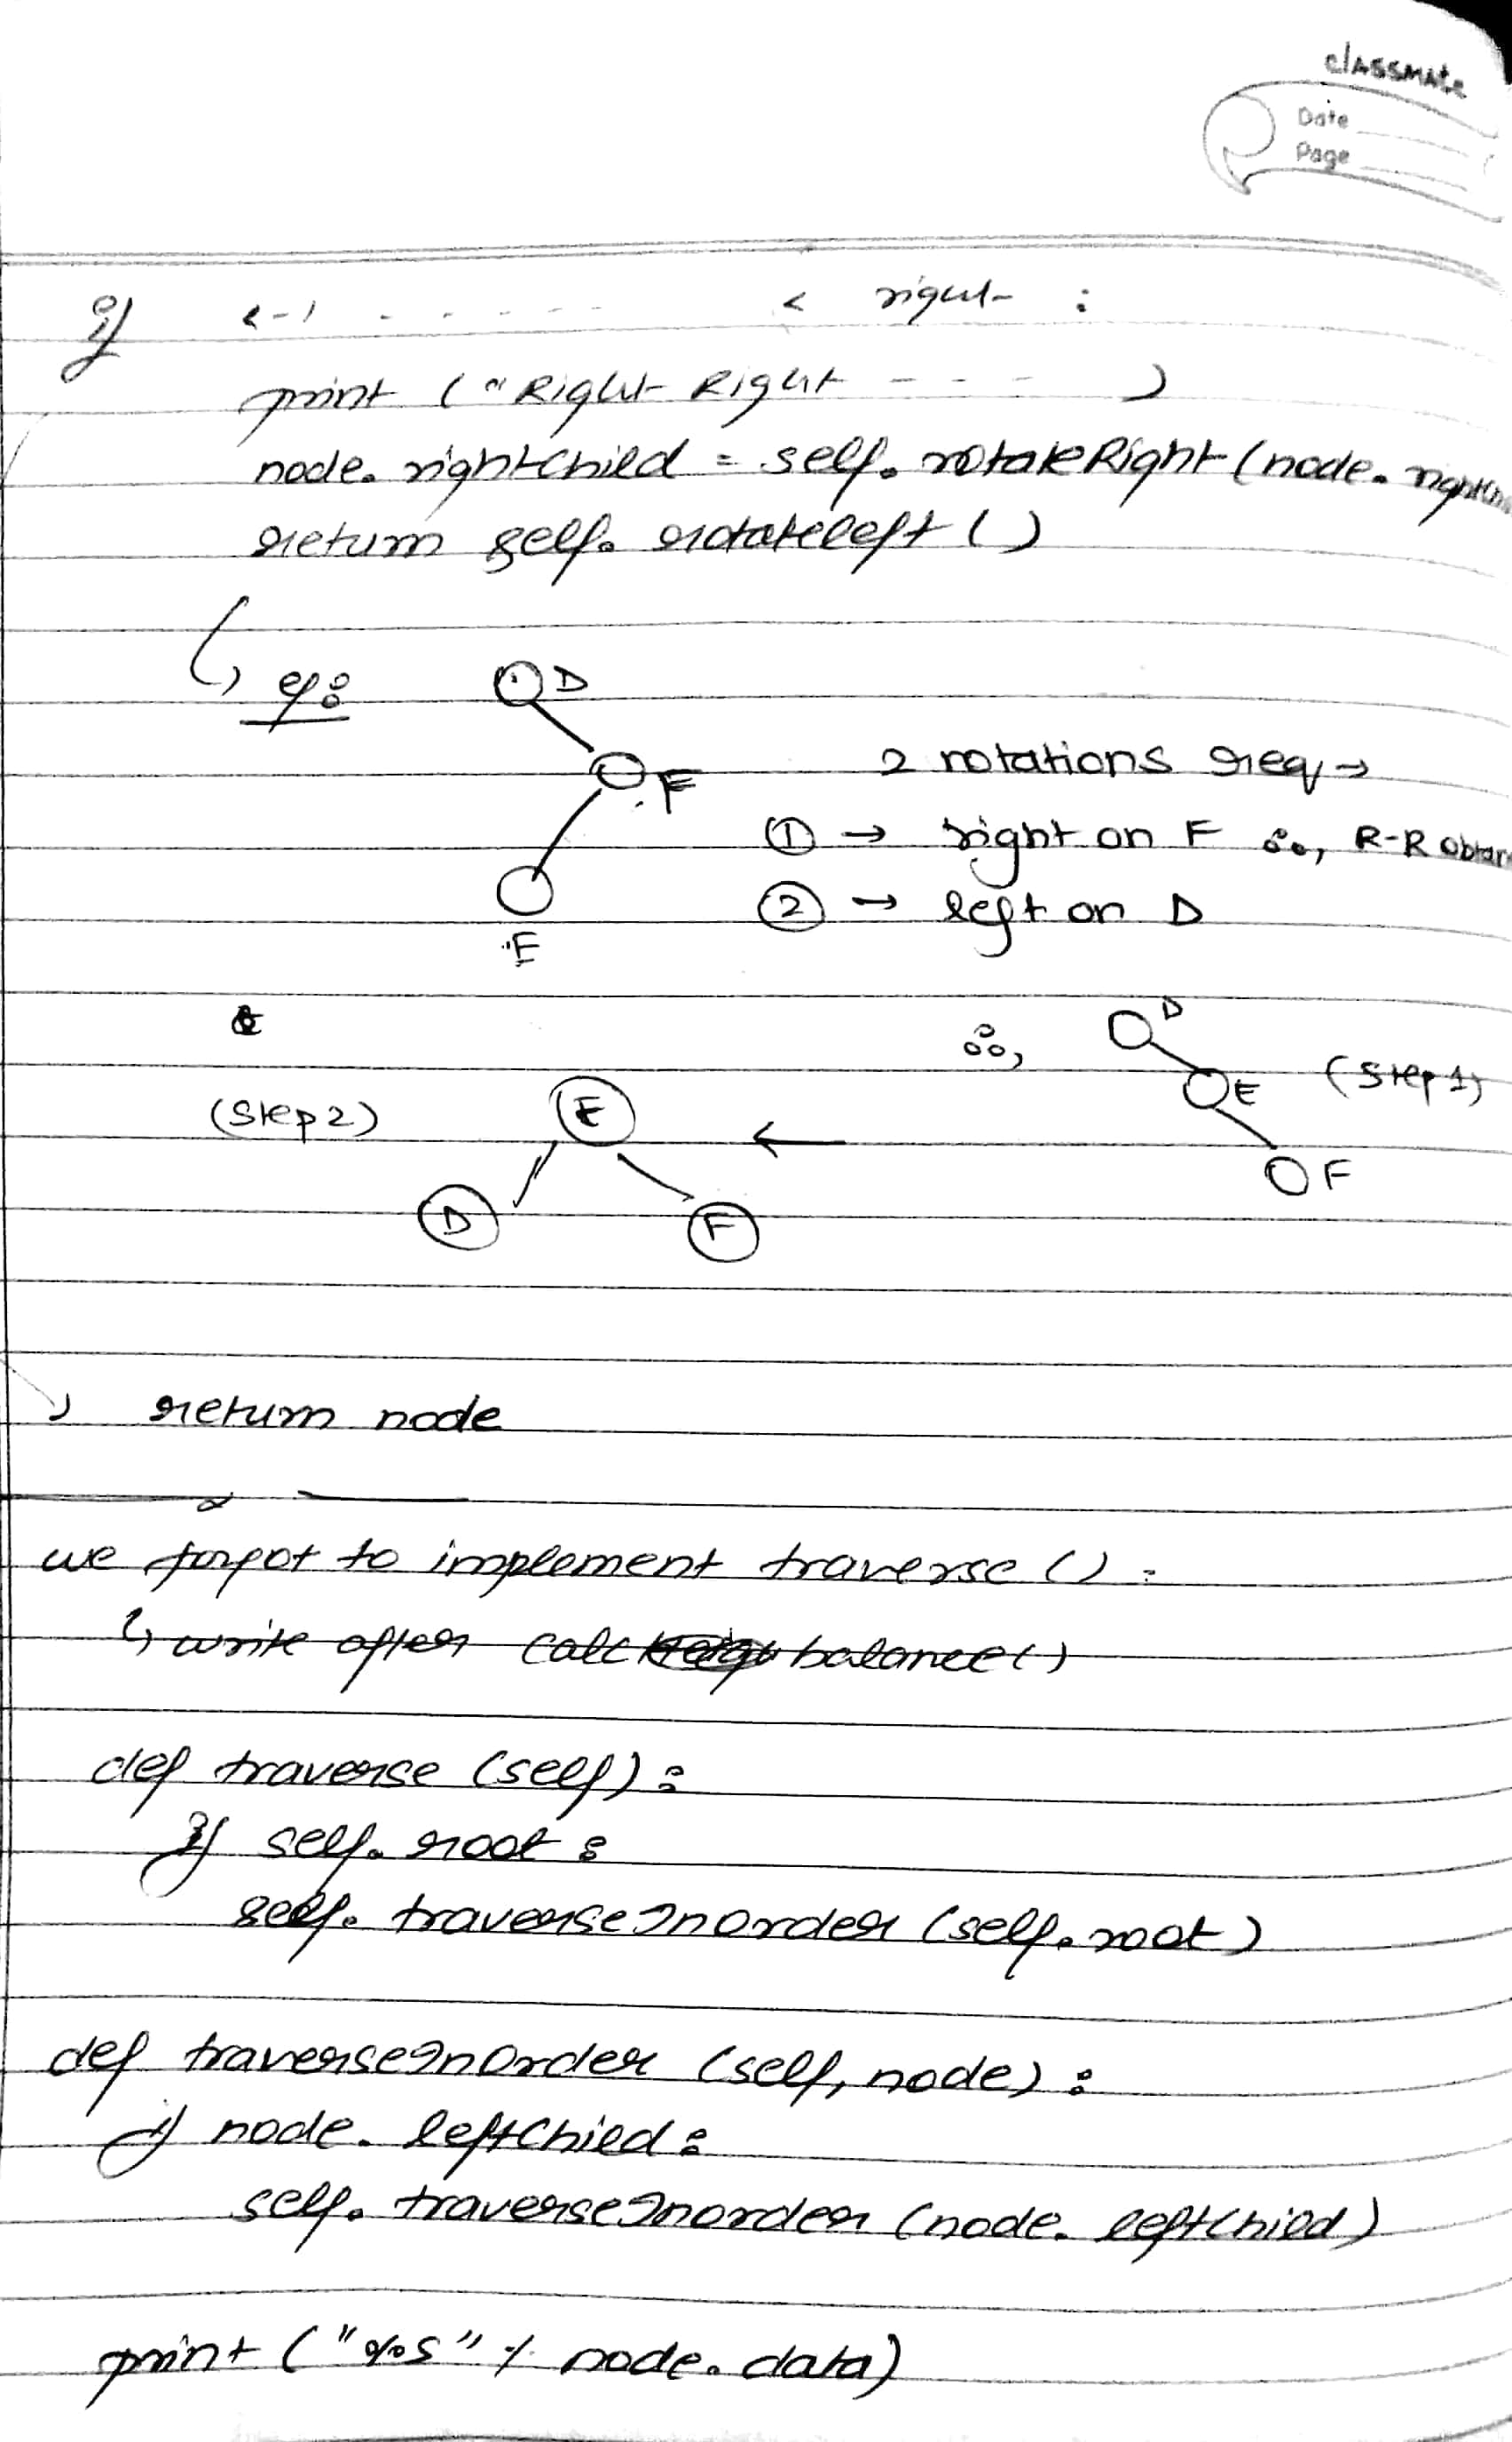 classmate
Date
Page
if <-1 - - - - - - < right :
print ("Right Right - - - )
node.rightChild = self.rotateRight (node.
return self.rotateleft ()
eg:
D
F
E
2 rotations req →
① → right on F ∴, R-R
② → left on D
∴,
D
E
F
(Step 1)
←
(Step 2)
E
D
F
return node
we forgot to implement traverse () :
↳ write after calc balance()
def traverse (self) :
if self.root :
self.traverseInOrder (self.root)
def traverseInOrder (self, node) :
if node.leftChild :
self.traverseInorder (node.leftChild)
print ("%s" % node.data)